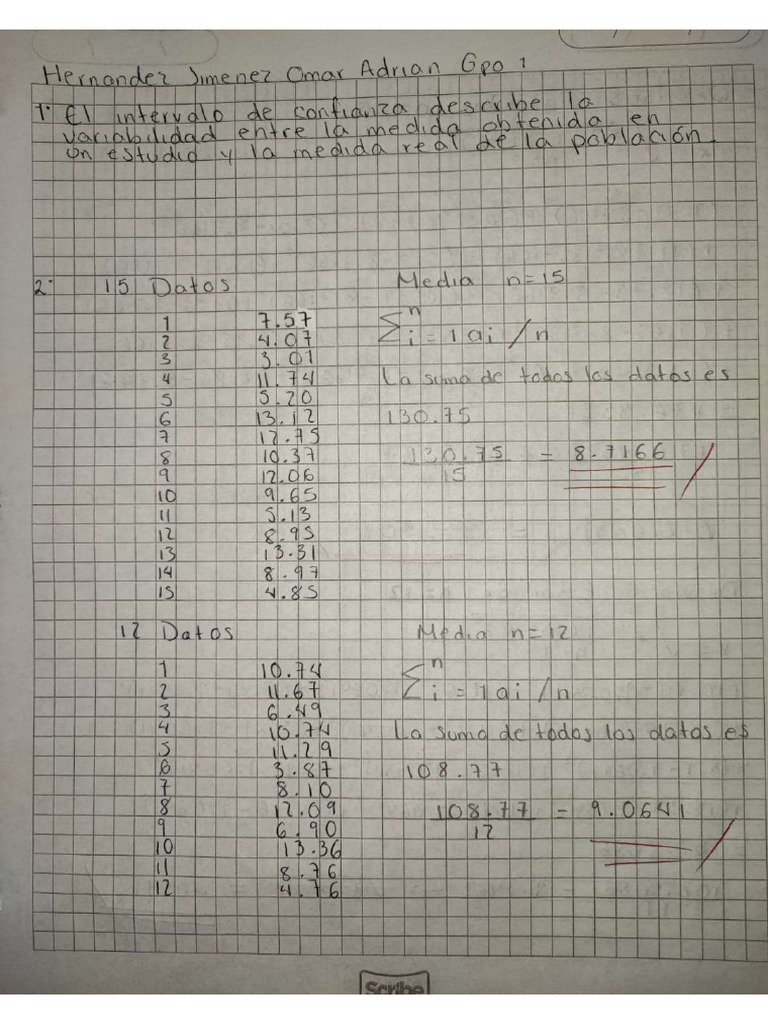 Hernandez Jimenez Omar Adrian Gpo 1
1. El intervalo de confianza describe la
variabilidad entre la medida obtenida en
un estudio y la medida real de la población.
2. 15 Datos Media n=15
1 7.57
2 4.07
3 3.01
4 11.74
5 5.20
6 13.12
7 12.75
8 10.37
9 12.06
10 9.65
11 5.13
12 8.95
13 13.31
14 8.97
15 4.85
∑ n i=1 ai/n
La suma de todos los datos es
130.75
130.75 = 8.7166
15
12 Datos Media n=12
1 10.74
2 11.67
3 6.49
4 10.74
5 11.29
6 3.87
7 8.10
8 12.09
9 6.90
10 13.36
11 8.76
12 4.76
∑ n i=1 ai/n
La suma de todos los datos es
108.77
108.77 = 9.0641
12
Scribe